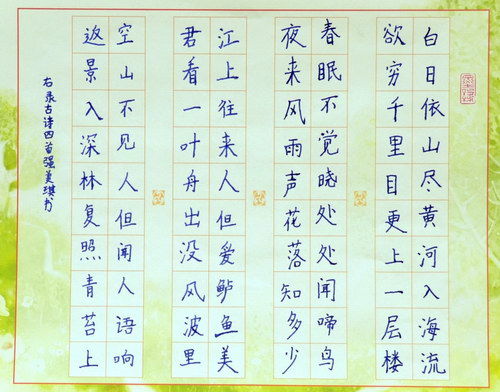 白日依山尽黄河入海流
欲穷千里目更上一层楼
春眠不觉晓处处闻啼鸟
夜来风雨声花落知多少
江上往来人但爱鲈鱼美
君看一叶舟出没风波里
空山不见人但闻人语响
返景入深林复照青苔上
右录古诗四首强美琪书